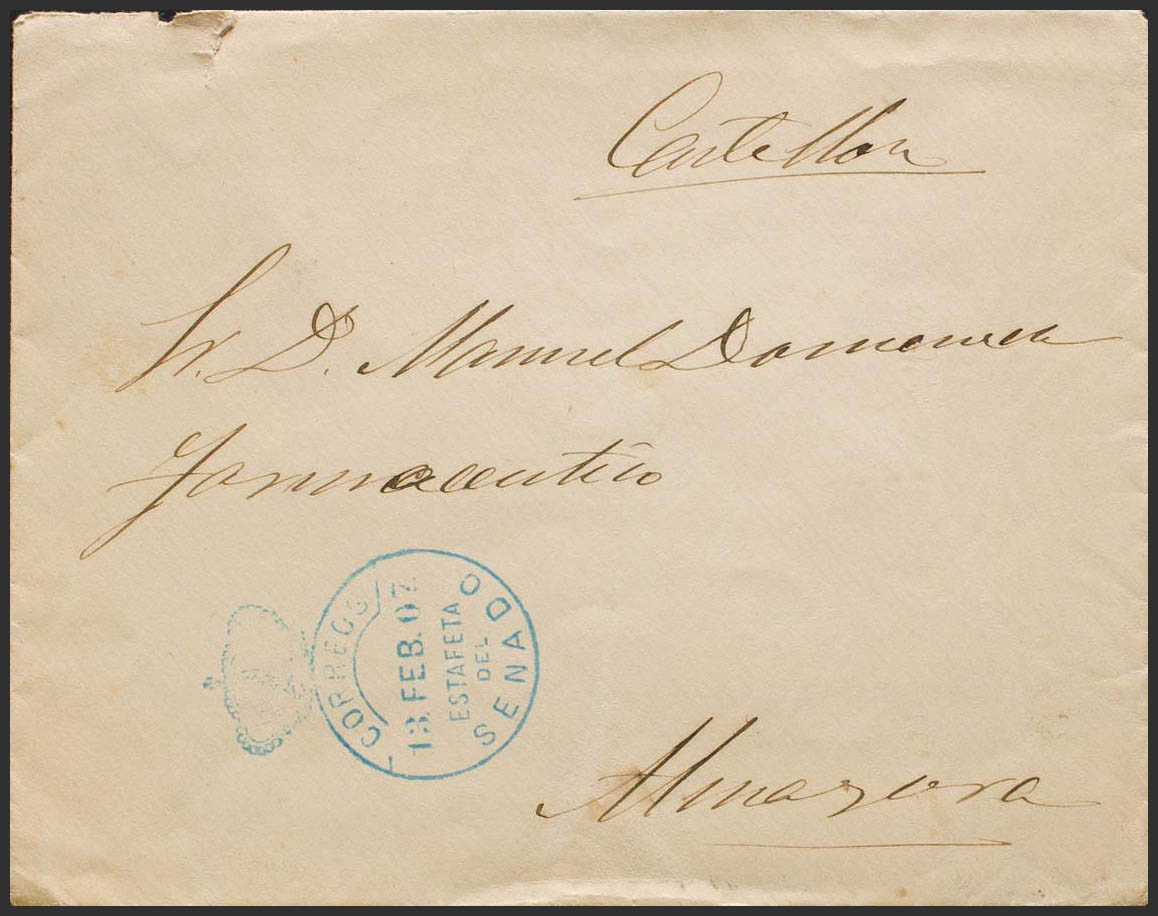 Castellon
Sr. D. Manuel Domenech
Farmaceutico
CORREOS
13. FEB. 07
ESTAFETA
DEL
SENADO
Almazora